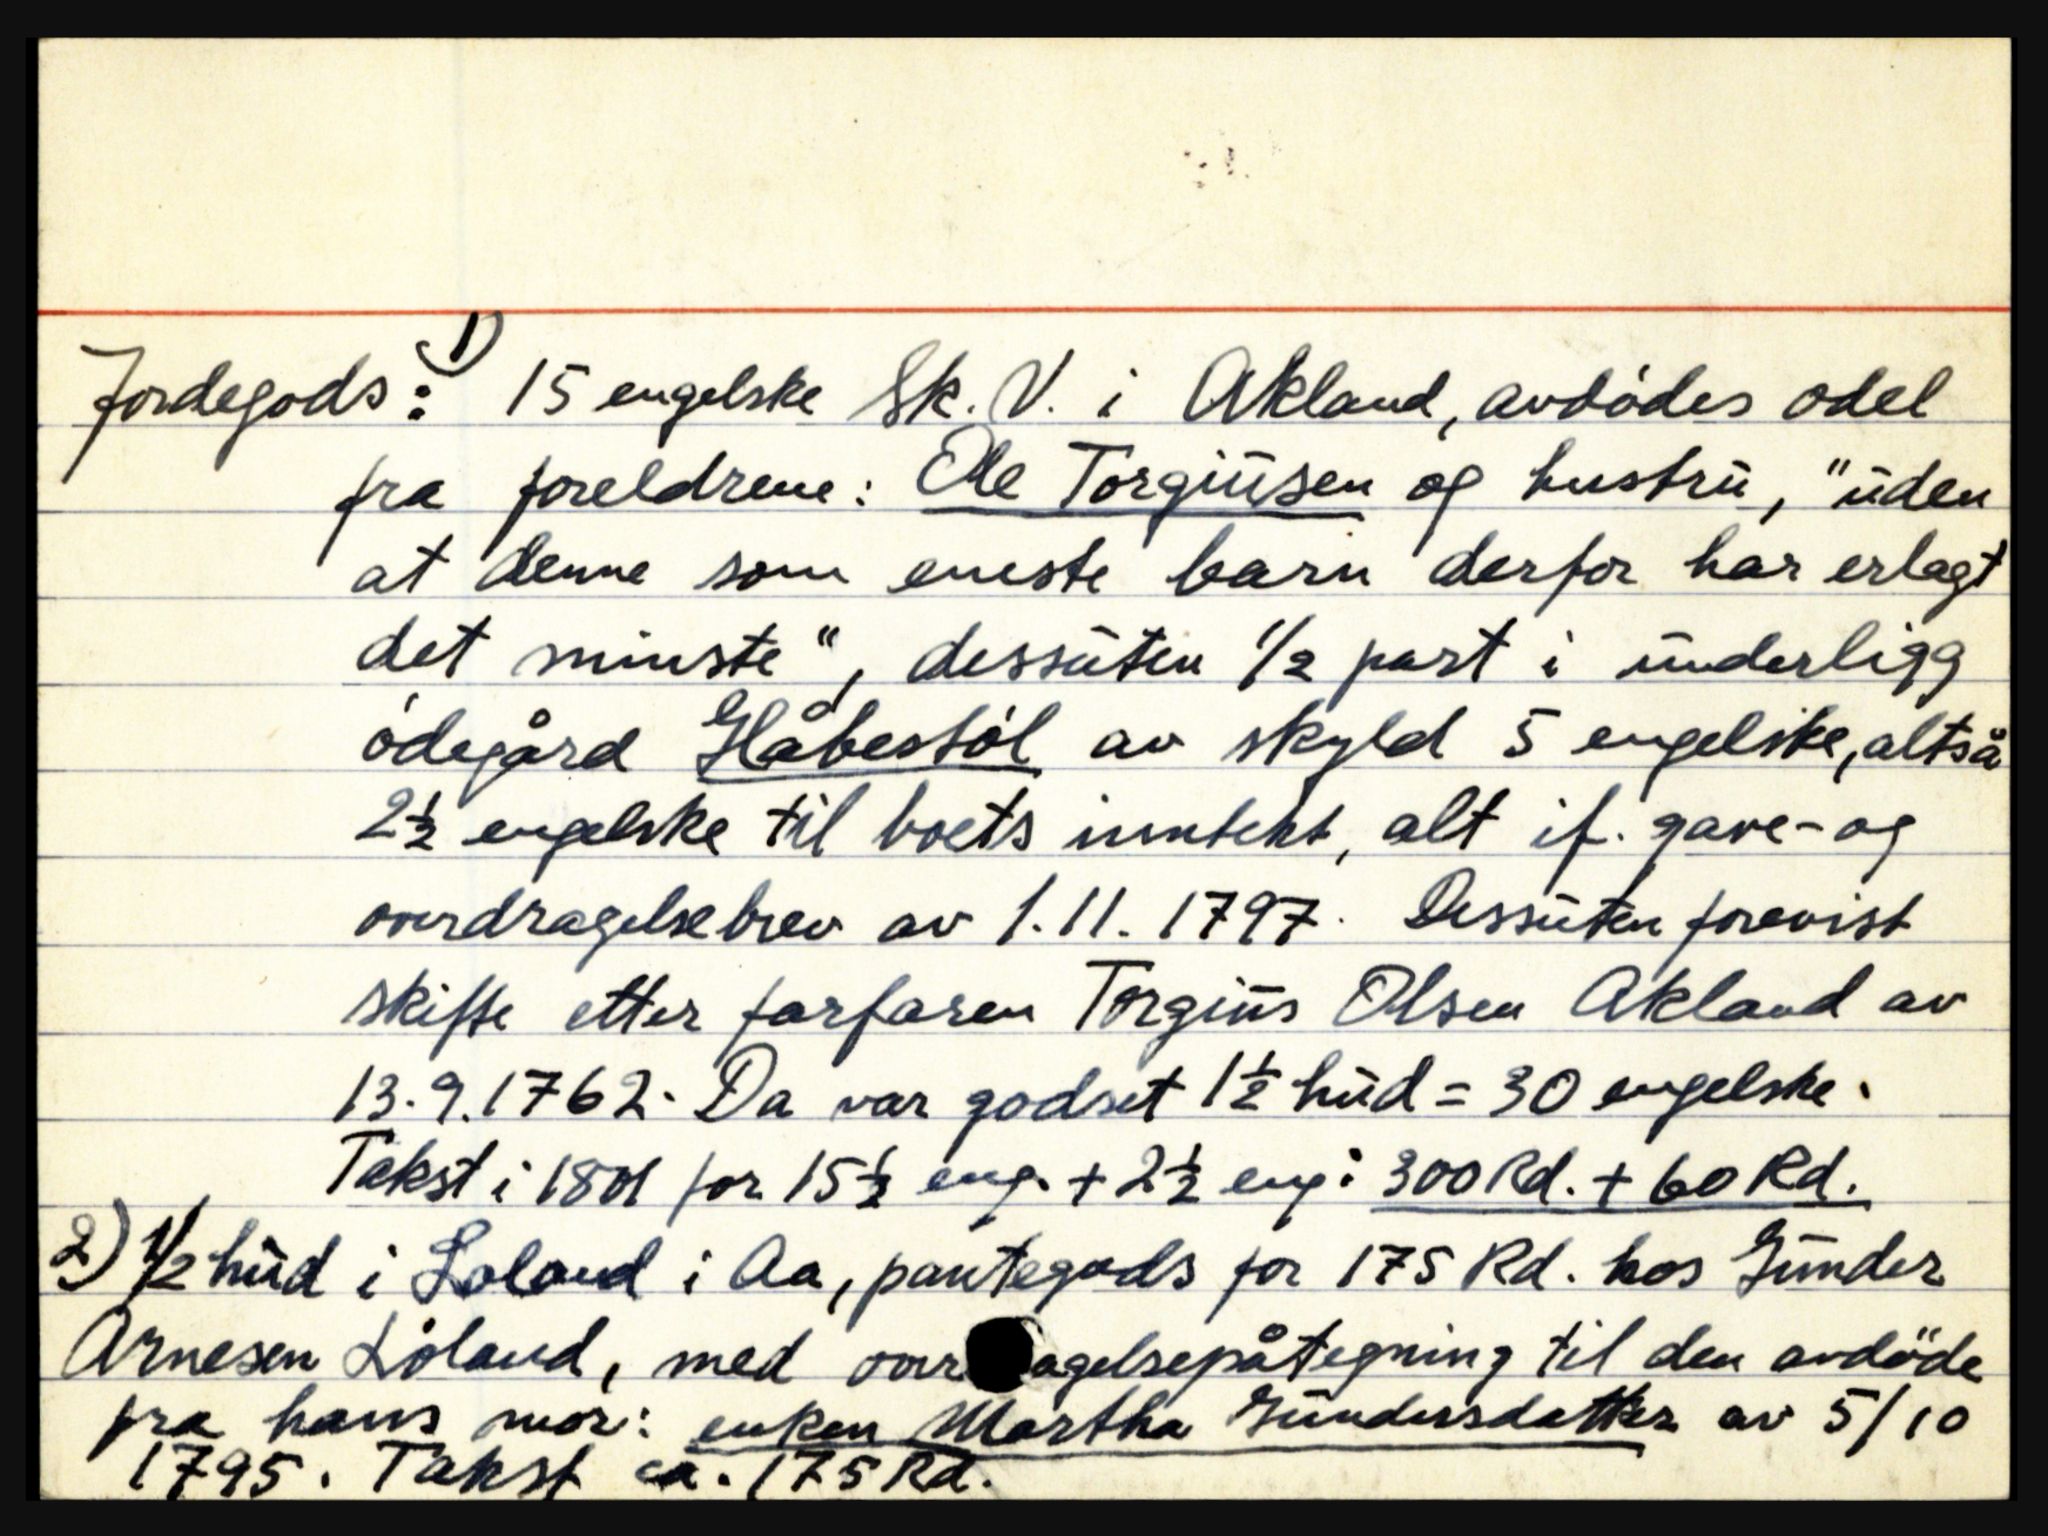 Jordegods: 1) 15 engelske Sk. V. i Akland, avdødes odel
fra foreldrene: Ole Torgiusen og hustru, "uden
at denne som eneste barn derfor har erlagt
det minste", dessuten 1/2 part i underligg
ødegård Håbestøl av skyld 5 engelske, altså
2½ engelske til boets inntekt, alt if. gave- og
overdragelsebrev av 1.11.1797. Dessuten forevist
skifte etter farfaren Torgius Olsen Akland av
13.9.1762. Da var godset 1½ hud = 30 engelske.
Takst i 1801 for 15½ eng. + 2½ eng: 300 Rd. + 60 Rd.
2) 1/2 hud i Loland i Aa, pantegods for 175 Rd. hos Gunder
Arnesen Loland, med over agelsepåtegning til den avdöde
fra hans mor: enken Martha Gundersdatter av 5/10
1795. Takst ca. 175 Rd.